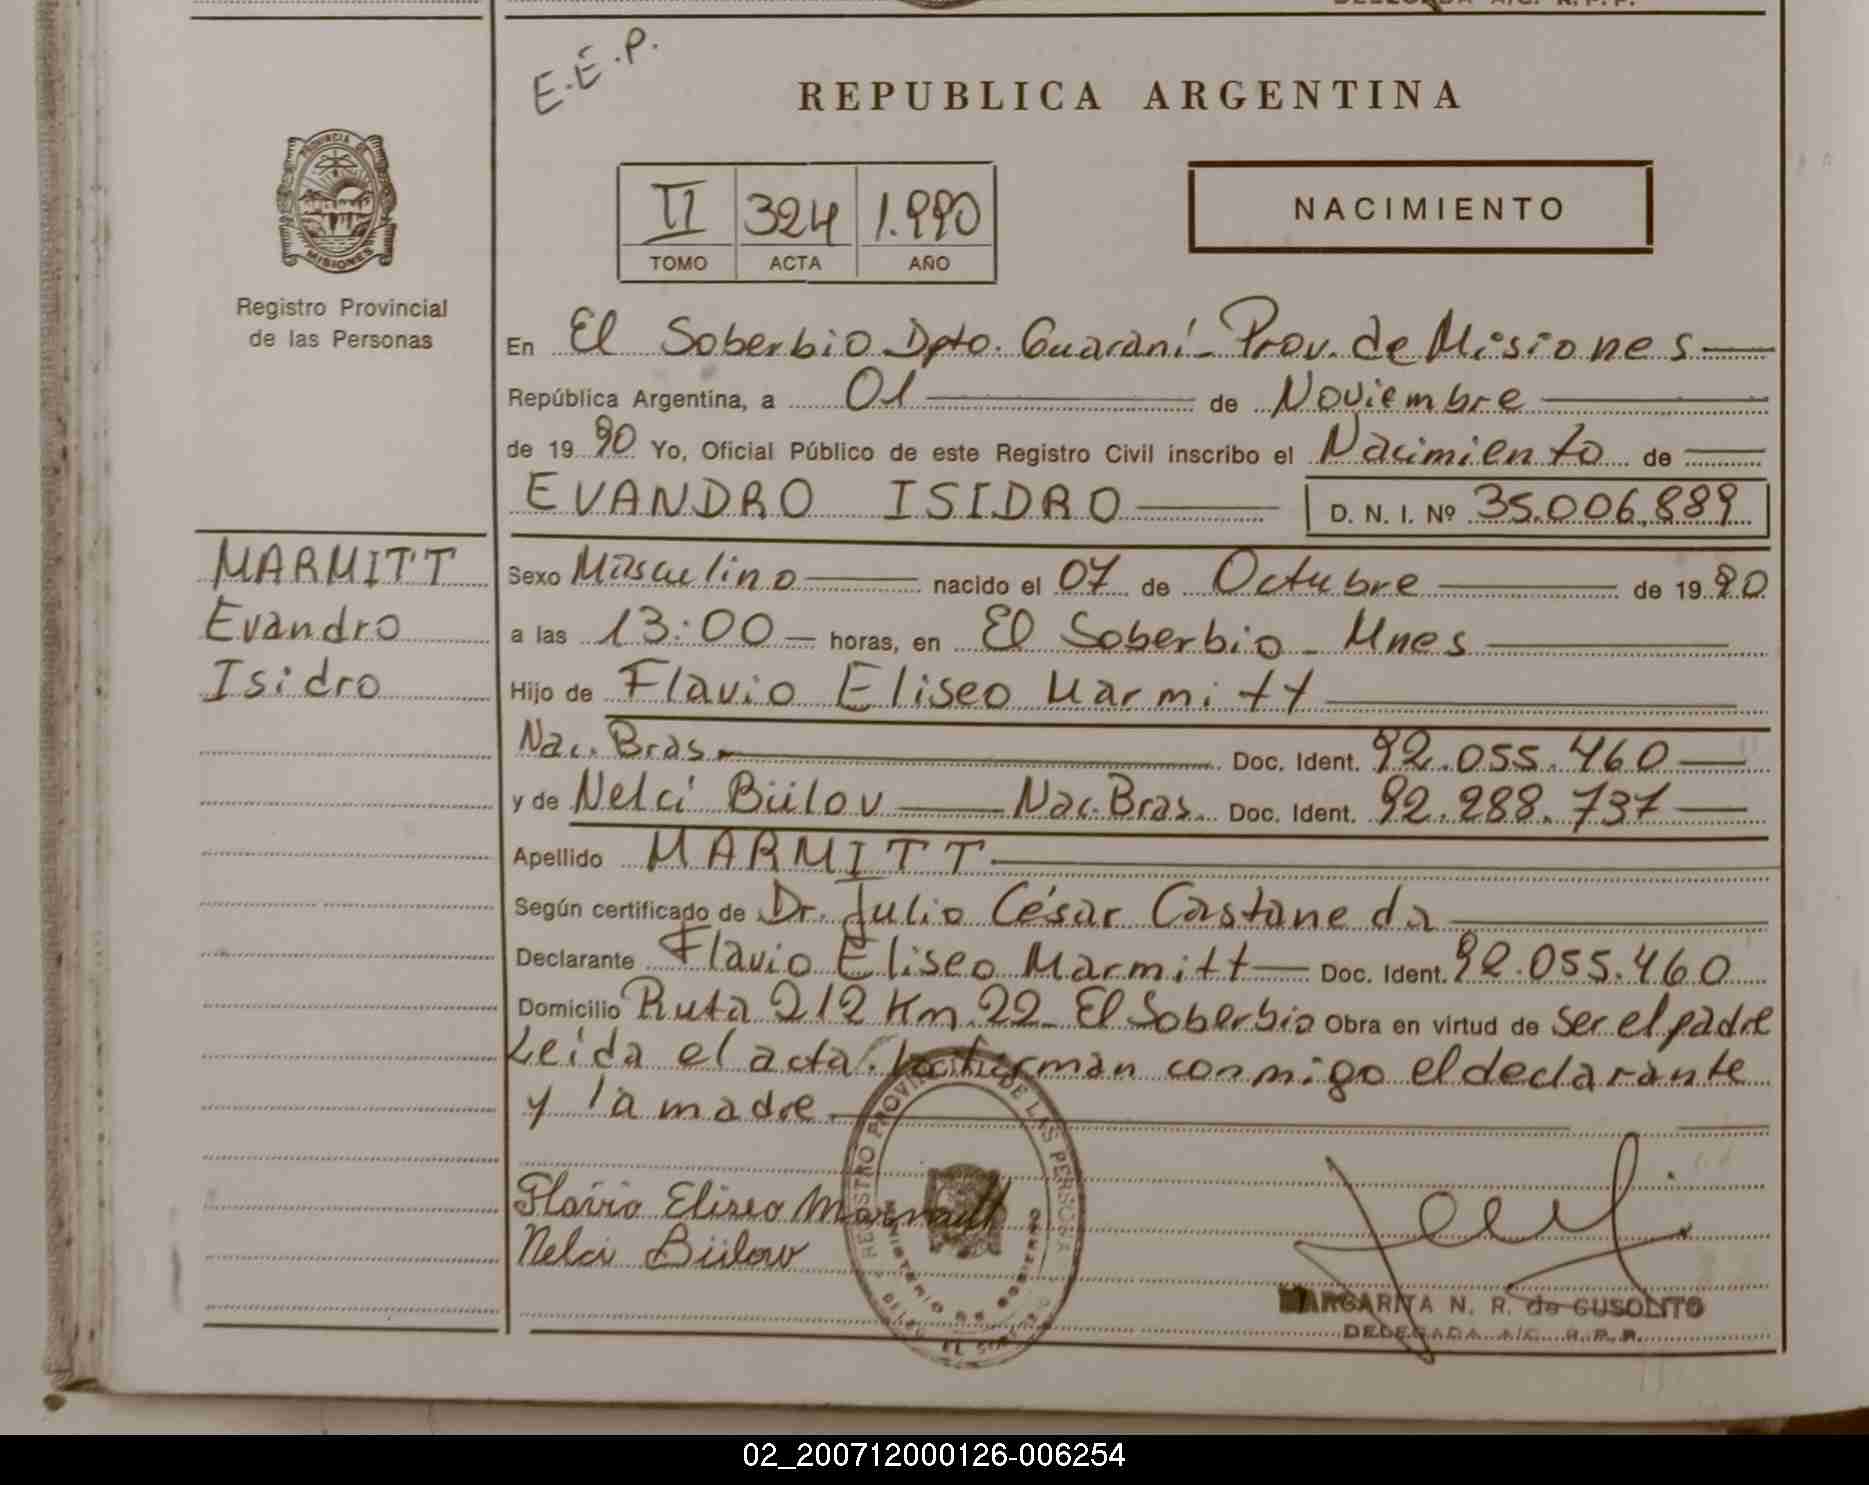 E.E.P.
REPUBLICA ARGENTINA
PROVINCIA DE
MISIONES
Registro Provincial
de las Personas
II 324 1.990
TOMO ACTA AÑO
NACIMIENTO
En El Soberbio Dpto. Guaraní - Prov. de Misiones
República Argentina, a 01 de Noviembre
de 1990 Yo, Oficial Público de este Registro Civil inscribo el Nacimiento de
EVANDRO ISIDRO D. N. I. Nº 35.006.889
MARMITT
Evandro
Isidro
Sexo Masculino nacido el 07 de Octubre de 1990
a las 13:00 horas, en El Soberbio - Mnes
Hijo de Flavio Eliseo Marmitt
Nac. Bras. Doc. Ident. 92.055.460
y de Nelci Bülov Nac. Bras. Doc. Ident. 92.288.737
Apellido MARMITT
Según certificado de Dr. Julio César Castaneda
Declarante Flavio Eliseo Marmitt Doc. Ident. 92.055.460
Domicilio Ruta 212 Km. 22 - El Soberbio Obra en virtud de ser el padre
Leída el acta, la firman conmigo el declarante
y la madre
REGISTRO PROVINCIAL DE LAS PERSONAS
MINISTERIO DE GOBIERNO
Flávio Eliseo Marmitt
Nelci Bülow
MARGARITA N. R. de GUSOLITO
DELEGADA A/C. R.P.P.
02_200712000126-006254